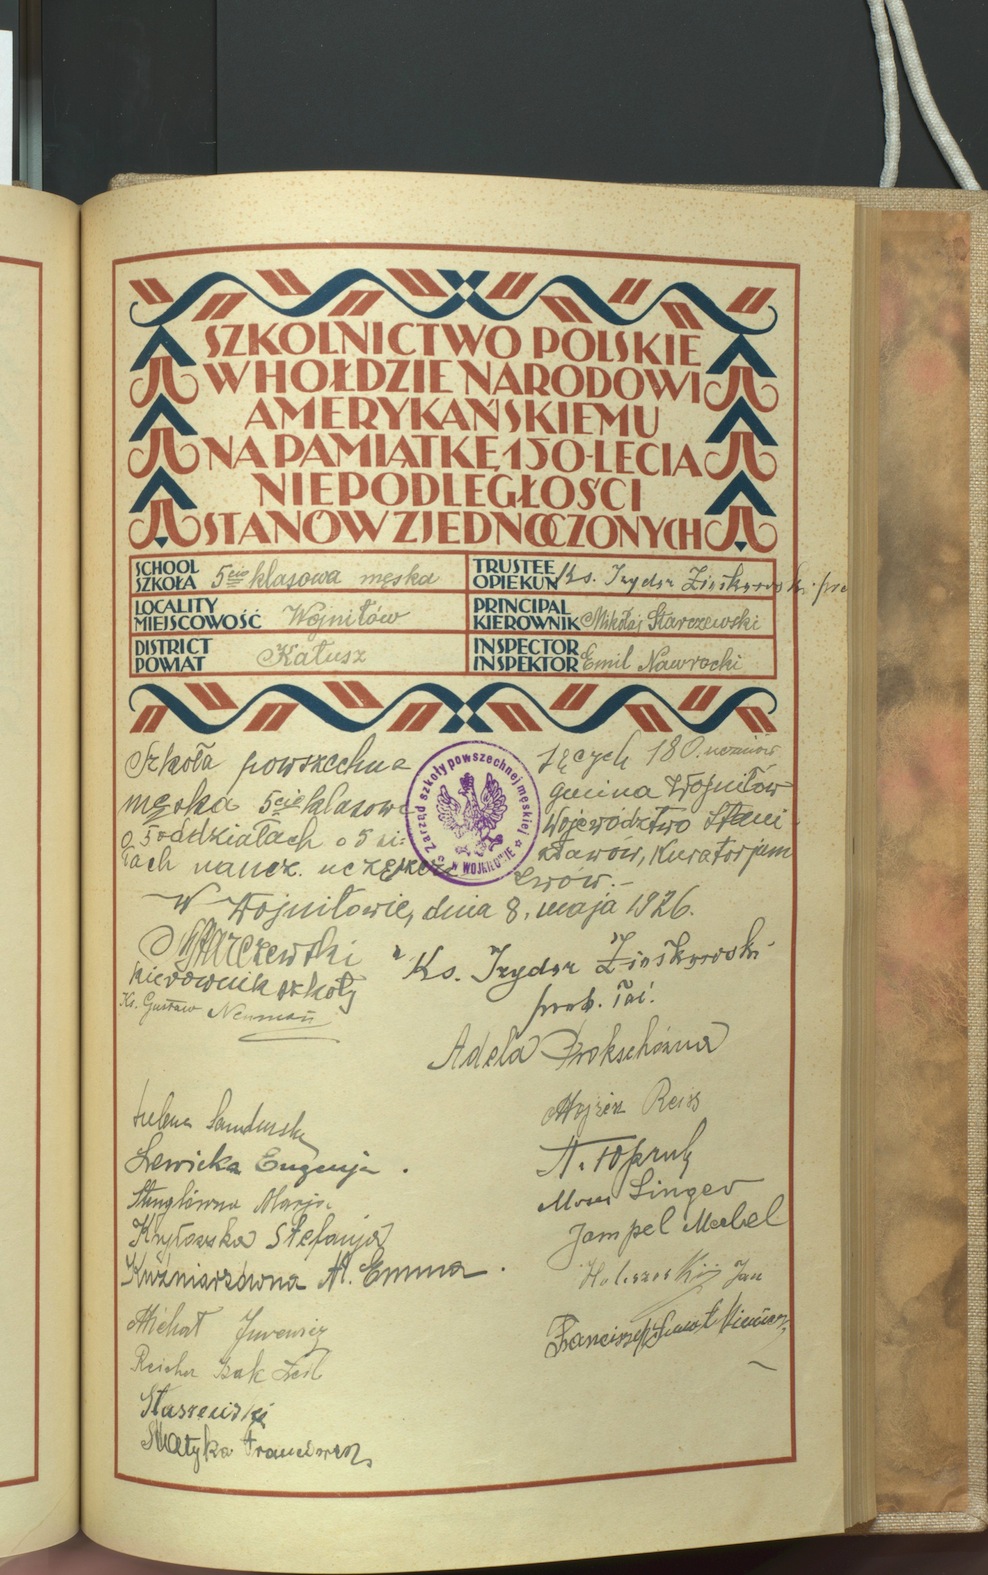 SZKOLNICTWO POLSKIE
W HOŁDZIE NARODOWI
AMERYKAŃSKIEMU
NA PAMIĄTKĘ 150-LECIA
NIEPODLEGŁOŚCI
STANÓW ZJEDNOCZONYCH
SCHOOL SZKOŁA 5cio klasowa męska
TRUSTEE OPIEKUN Ks. Izydor
LOCALITY MIEJSCOWOŚĆ Wojniłów
PRINCIPAL KIEROWNIK Mikołaj Starczewski
DISTRICT POWIAT Kałusz
INSPECTOR INSPEKTOR Emil Nawrocki
Szkoła powszechna
męska 5cio klasowa
o 5 oddziałach o 5 si-
łach naucz. uczęszcza-
jących 180 uczniów
gmina Wojniłów
Województwo Stani-
sławów, Kuratorjum
Lwów.-
Zarząd szkoły powszechnej męskiej
w WOJNIŁOWIE
W Wojniłowie, dnia 8. maja 1926.
MStarczewski
kierownik szkoły
Ks. Gustaw Neuman
Ks. Izydor
prob. łać.
Adela Prokschówna
Helena
Lewicka Eugenja.
Stenglówna Marja.
Kryłowska Stefanja
Kuźniarzówna M. Emma.
Michał Jurewicz
Reicher Isak Leib
Matyka Franciszek
Mojżesz Reiss
Moses Singer
Jampel Mechel
Jan
Franciszek